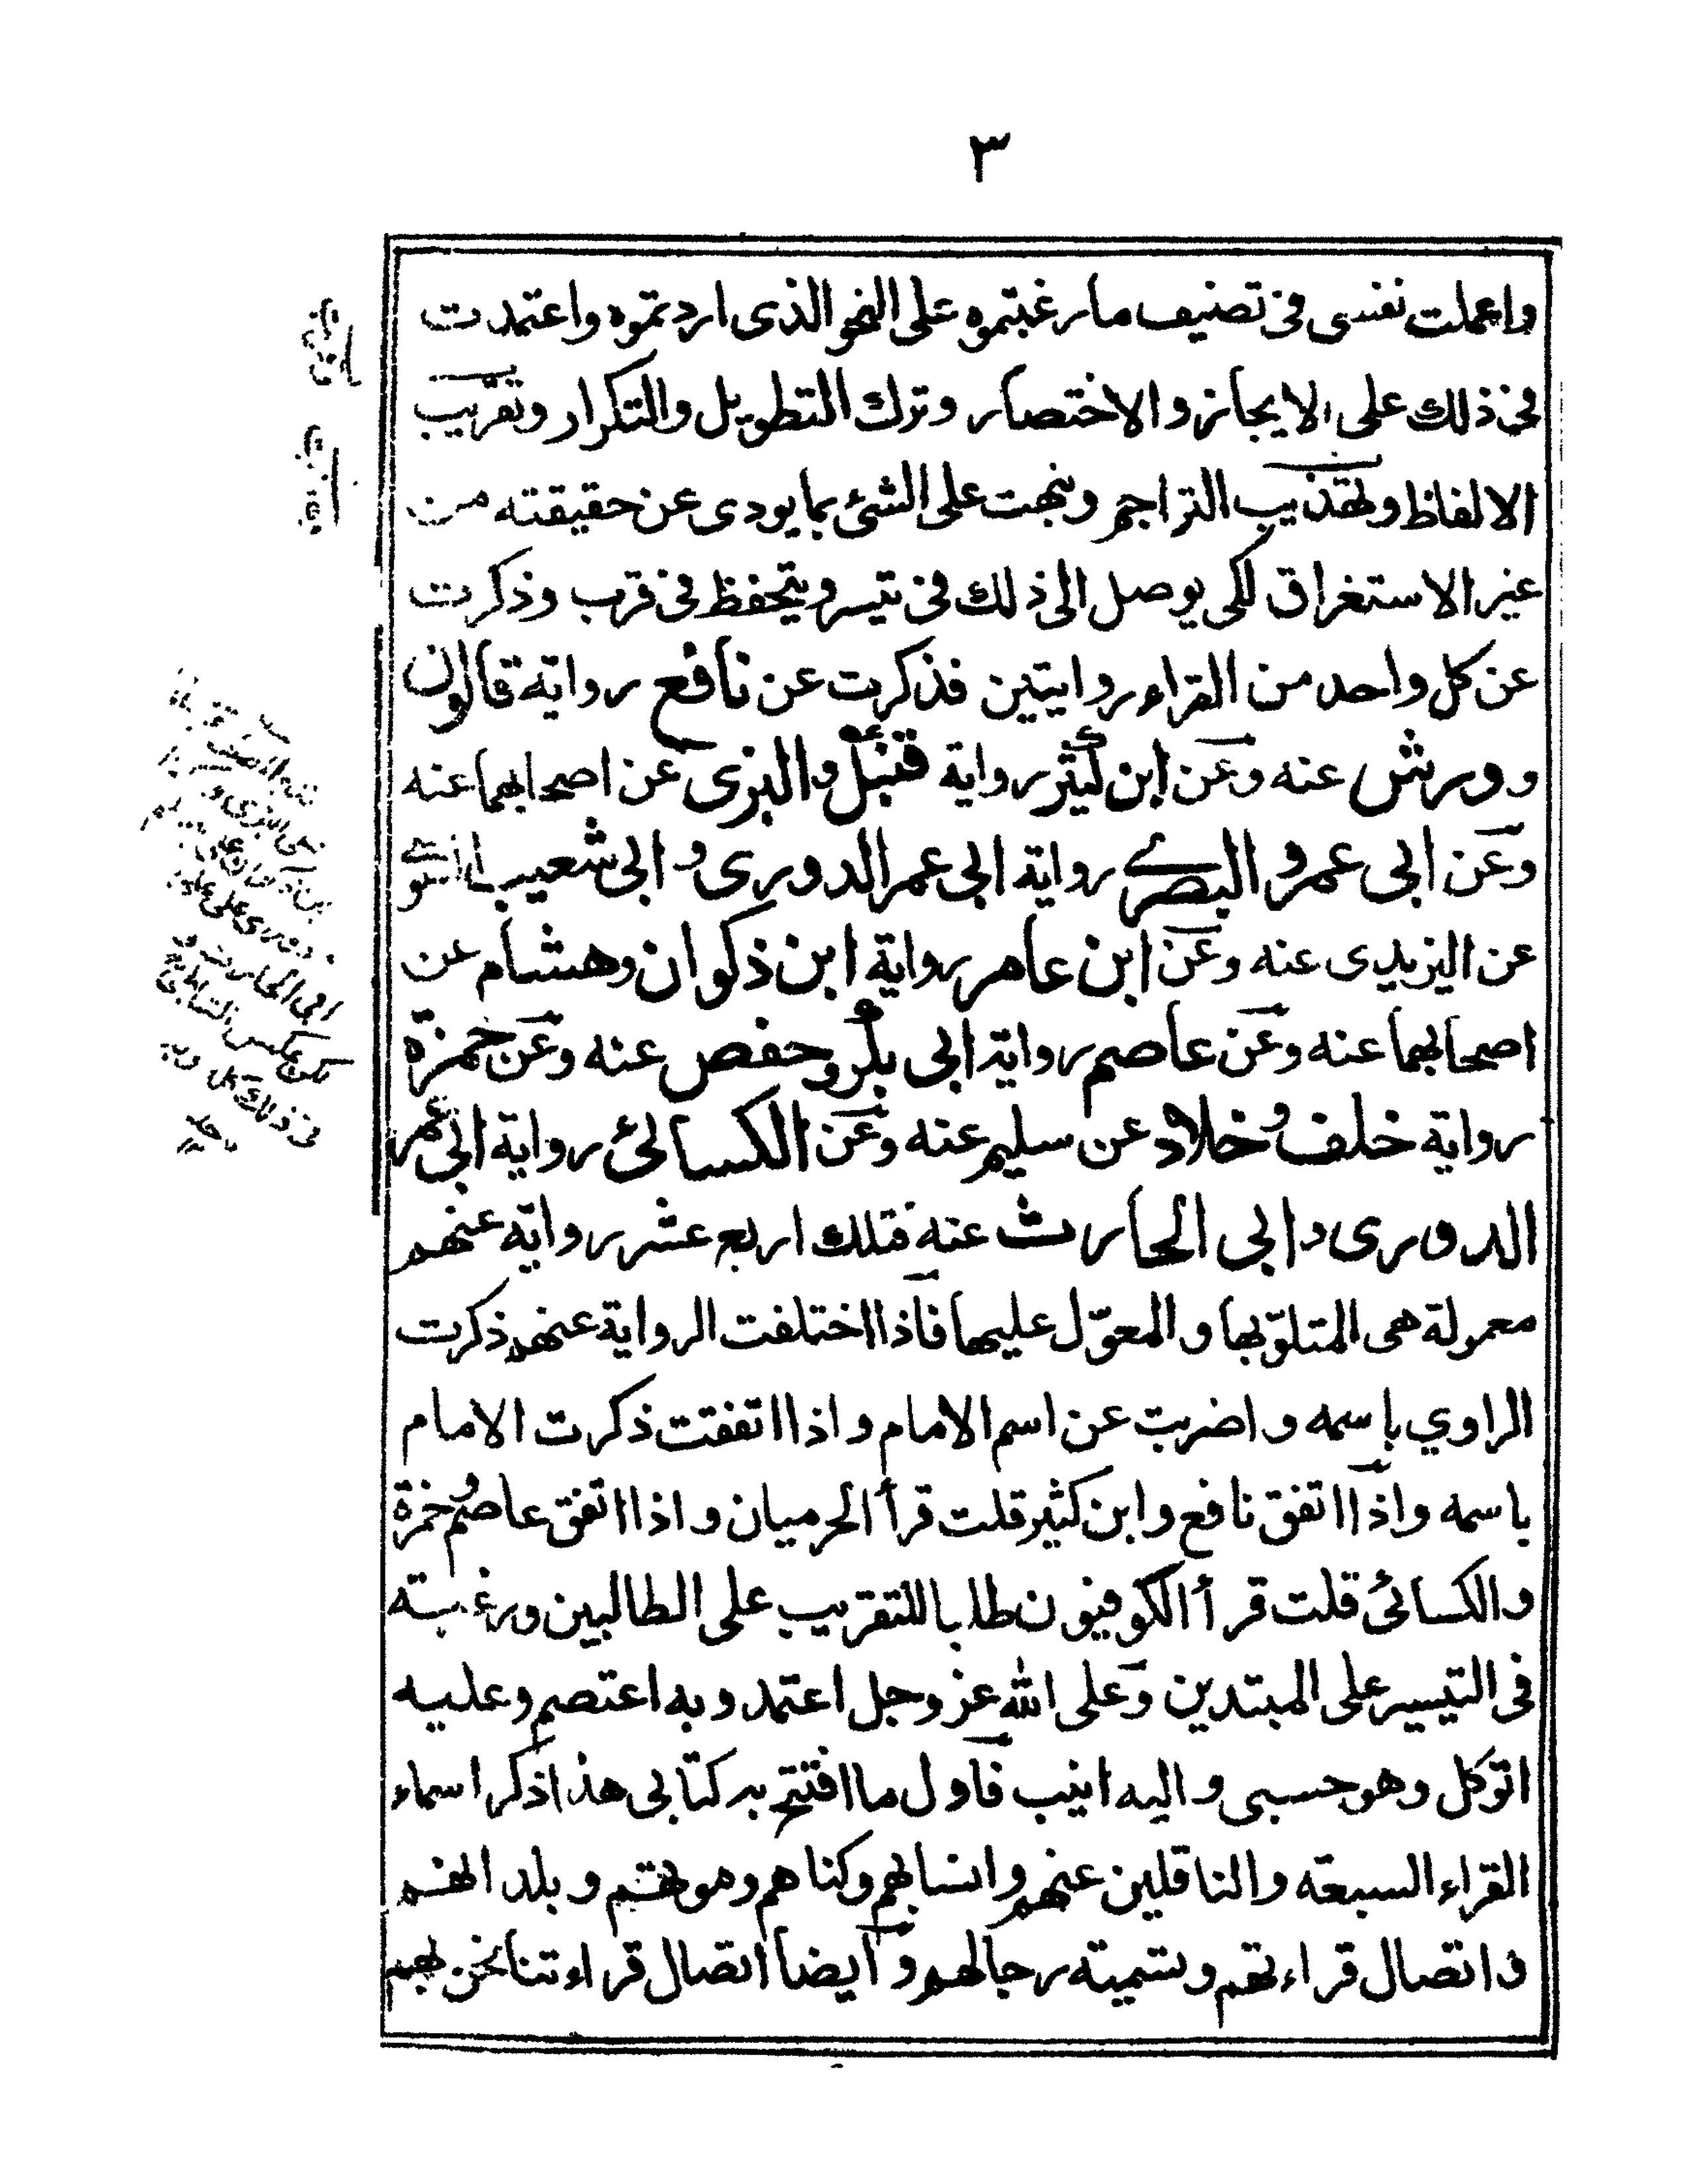 ٣
واعملت نفسى فى تصنيف ما رغبتموه على النحو الذى اردتموه واعتمدت
فى ذلك على الايجاز والاختصار وترك التطويل والتكرار وتقريب
الالفاظ وتهذيب التراجم ونبهت على الشئ بما يودى عن حقيقته من
غير الاستغراق لكى يوصل الى ذلك فى تيسر ويتحفظ فى قرب وذكرت
عن كل واحد من القراء روايتين فذكرت عن نافع رواية قالون
وورش عنه وعن ابن كثير رواية قنبل والبزى عن اصحابهما عنه
وعن ابى عمرو البصرى رواية ابى عمر الدورى وابى شعيب السوسى
عن اليزيدى عنه وعن ابن عامر رواية ابن ذكوان وهشام عن
اصحابهما عنه وعن عاصم رواية ابى بكر وحفص عنه وعن حمزة
رواية خلف وخلاد عن سليم عنه وعن الكسائى رواية ابى عمر
الدورى وابى الحارث عنه فتلك اربع عشر رواية عنهم
معمولة هى المتلوّ بها والمعوّل عليها فاذا اختلفت الرواية عنهم ذكرت
الراوي باسمه واضربت عن اسم الامام واذا اتفقت ذكرت الامام
باسمه واذا اتفق نافع وابن كثير قلت قرأ الحرميان واذا اتفق عاصم وحمزة
والكسائى قلت قرأ الكوفيون طلبا للتقريب على الطالبين ورغبته
فى التيسير على المبتدين وعلى الله عز وجل اعتمد وبه اعتصم وعليه
اتوكل وهو حسبى واليه انيب فاول ما افتتح به كتابى هذا ذكر اسماء
القراء السبعة والناقلين عنهم وانسابهم وكناهم وموتهم وبلدانهم
واتصال قراءتهم وتسمية رجالهم وايضا اتصال قراءتنا نحن بهم